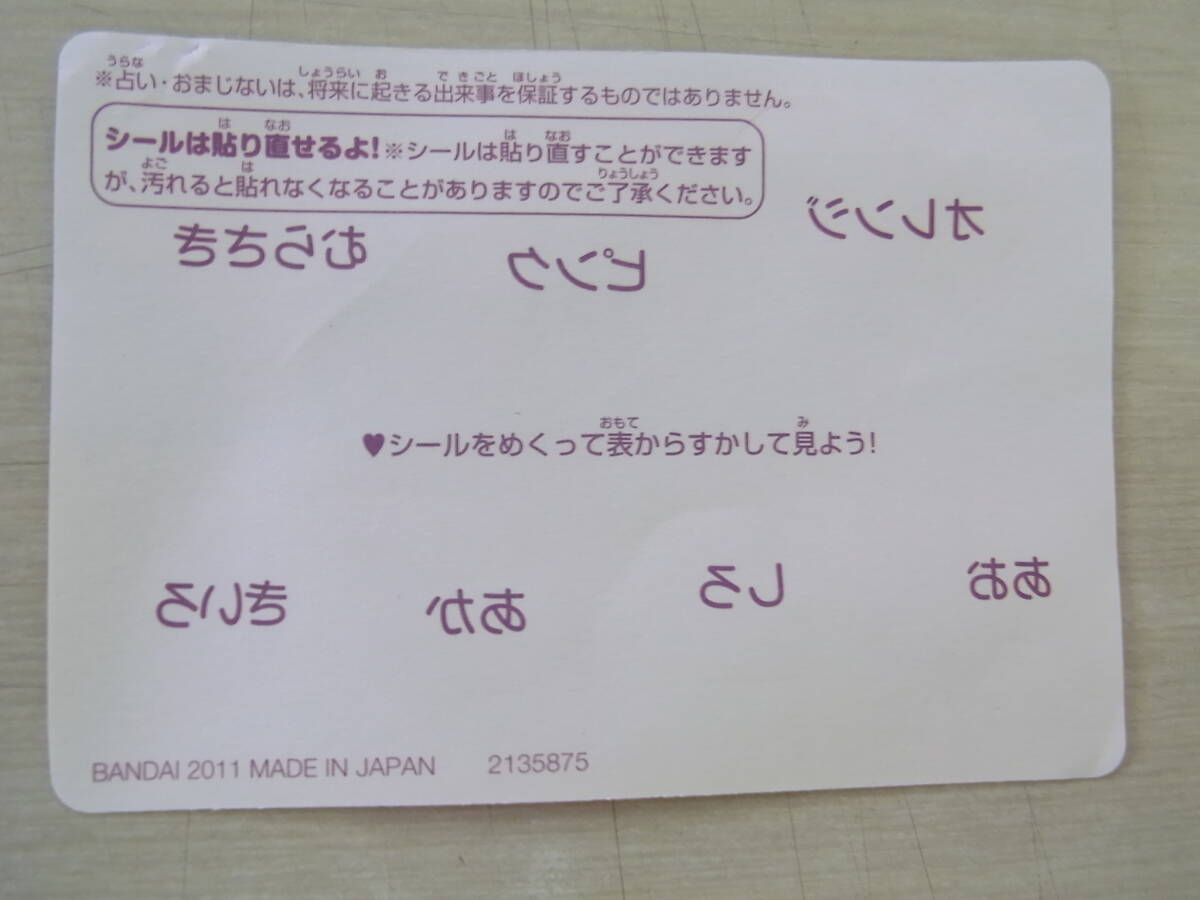 ※占い・おまじないは、将来に起きる出来事を保証するものではありません。
シールは貼り直せるよ!※シールは貼り直すことができます
が、汚れると貼れなくなることがありますのでご了承ください。
むらさき
ピンク
オレンジ
♥シールをめくって表からすかして見よう!
きいろ
あか
しろ
あお
BANDAI 2011 MADE IN JAPAN 2135875